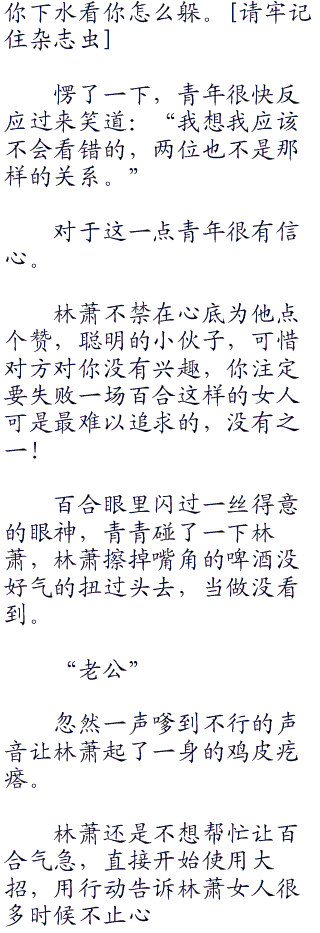 你下水看你怎么躲。[请牢记
住杂志虫]
愣了一下，青年很快反
应过来笑道：“我想我应该
不会看错的，两位也不是那
样的关系。”
对于这一点青年很有信
心。
林萧不禁在心底为他点
个赞，聪明的小伙子，可惜
对方对你没有兴趣，你注定
要失败一场百合这样的女人
可是最难以追求的，没有之
一！
百合眼里闪过一丝得意
的眼神，青青碰了一下林
萧，林萧擦掉嘴角的啤酒没
好气的扭过头去，当做没看
到。
“老公”
忽然一声嗲到不行的声
音让林萧起了一身的鸡皮疙
瘩。
林萧还是不想帮忙让百
合气急，直接开始使用大
招，用行动告诉林萧女人很
多时候不止心